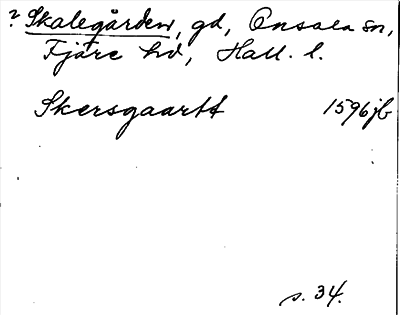 ? Skalegården, gd, Onsala sn,
Fjäre hd, Hall. l.
Skersgaartt 1596 jb
s. 34.